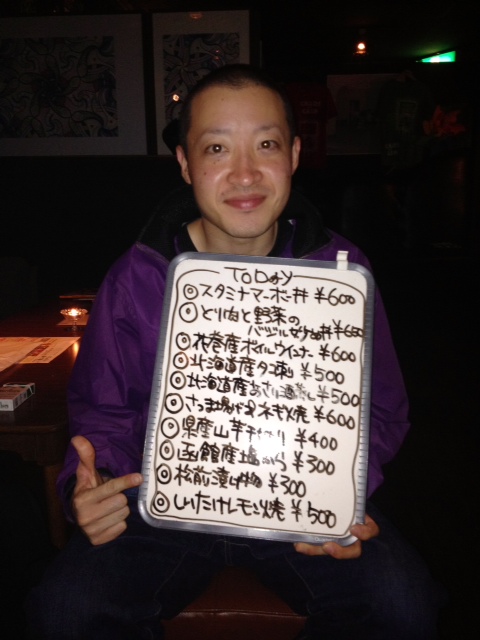 ToDay
◎スタミナマーボー丼 ¥600
◎とり肉と野菜の
バジル炒め丼 ¥600
◎花巻産ボイルウインナー ¥600
◎北海道産タコ刺 ¥500
◎北海道産あさり酒蒸し ¥500
◎さつま揚げネギ焼 ¥600
◎県産山芋千切り ¥400
◎函館産塩から ¥300
◎松前漬け物 ¥300
◎しいたけレモン焼 ¥500